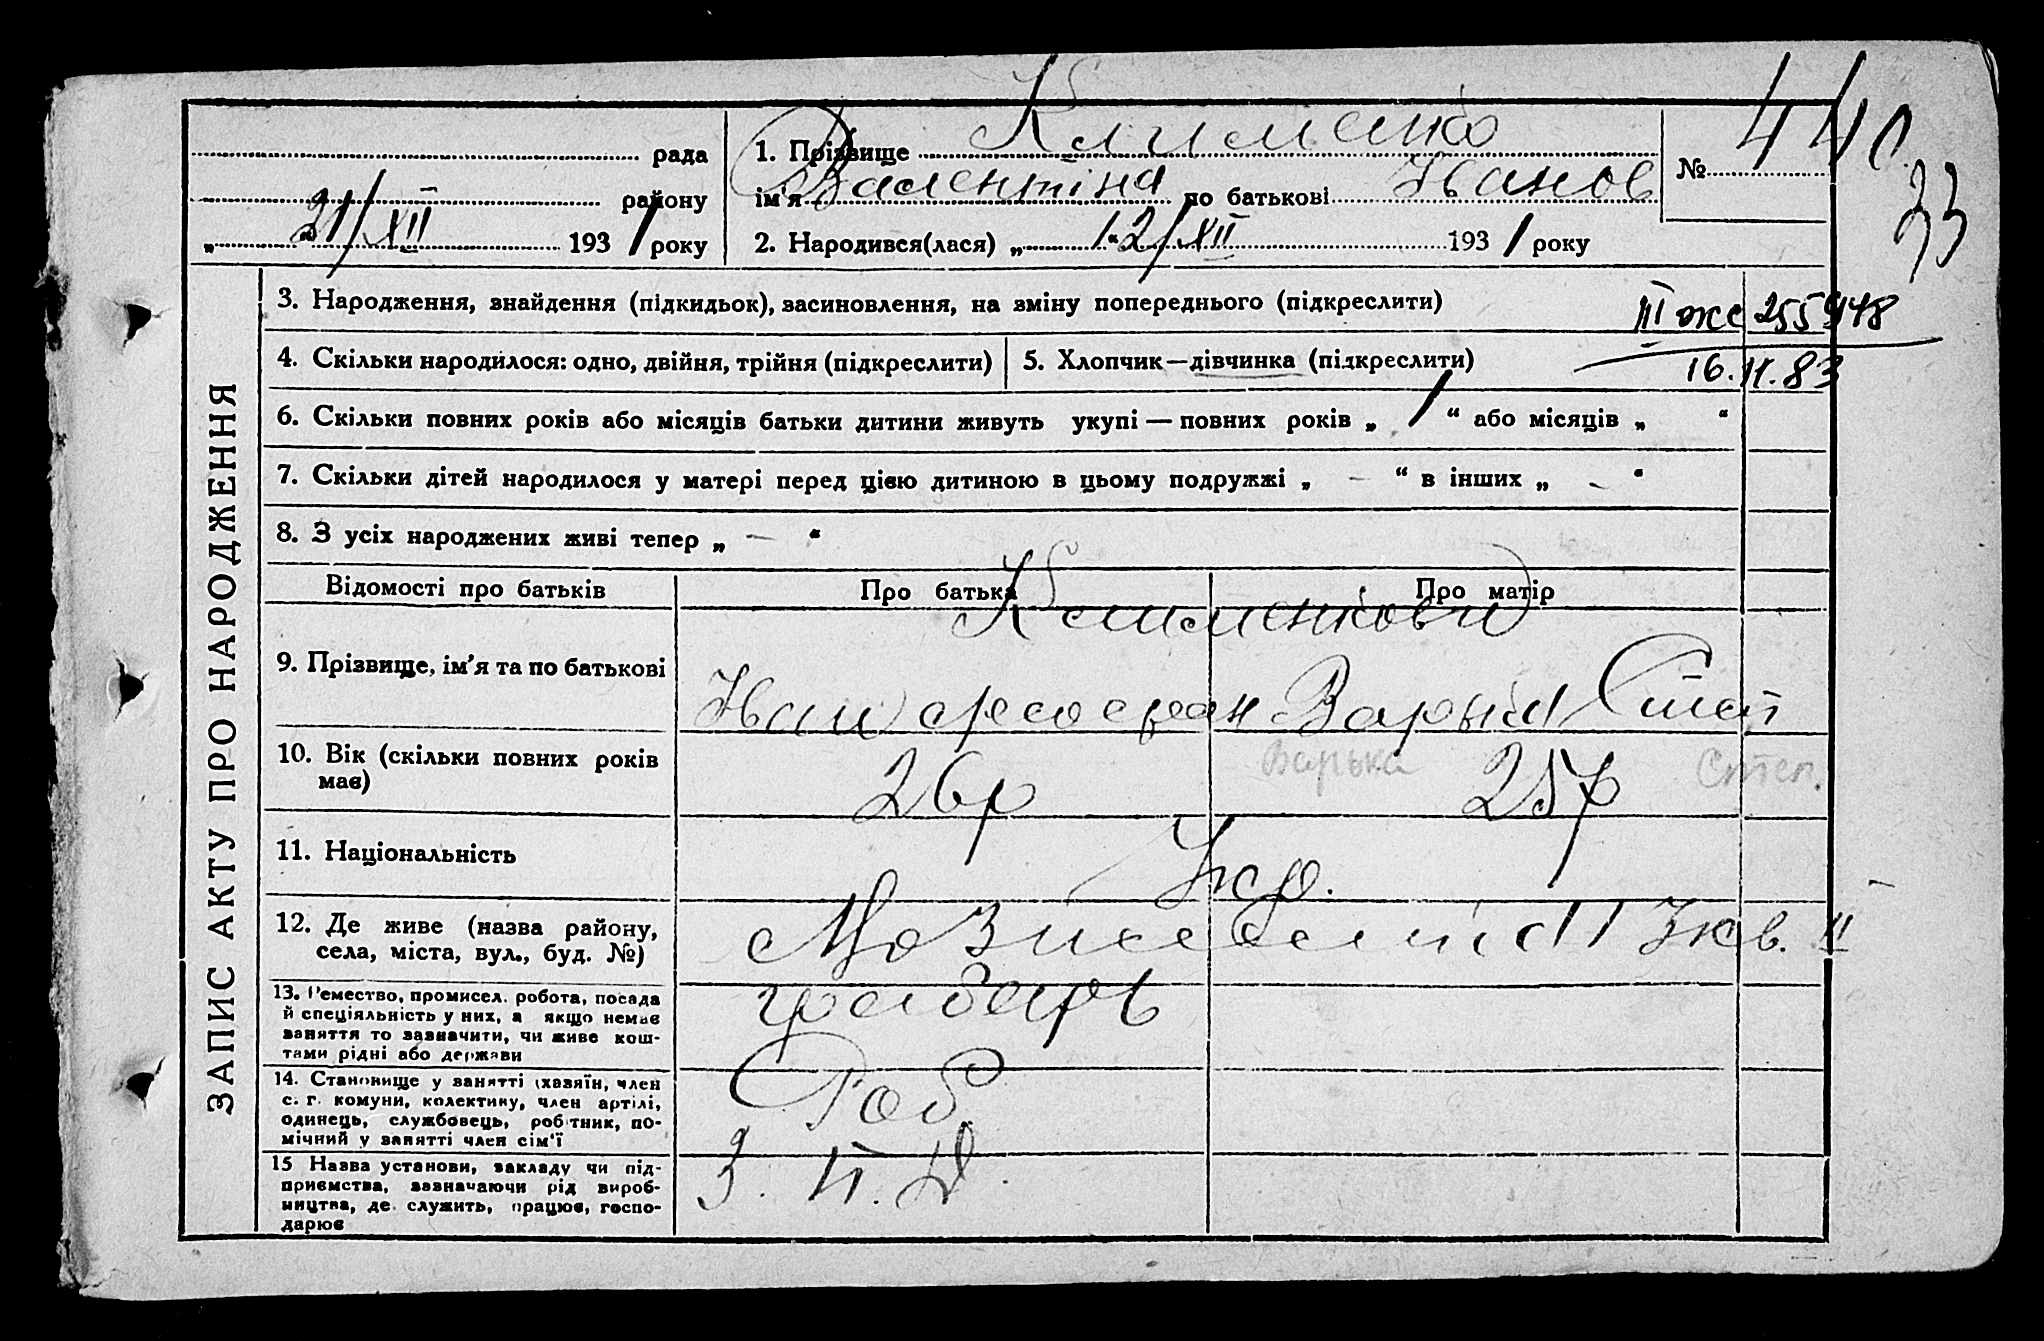 рада
району
„ 21/XII 1931 року
1. Прізвище Клименко
ім'я Валентіна по батькові Іванов
2. Народився(лася) „ 12/XII 1931 року
№ 440
33
ЗАПИС АКТУ ПРО НАРОДЖЕННЯ
3. Народження, знайдення (підкидьок), засиновлення, на зміну попереднього (підкреслити)
III жс 255948
16.11.83
4. Скільки народилося: одно, двійня, трійня (підкреслити)
5. Хлопчик—дівчинка (підкреслити)
6. Скільки повних років або місяців батьки дитини живуть укупі — повних років „ 1 “ або місяців „ “
7. Скільки дітей народилося у матері перед цією дитиною в цьому подружжі „ — “ в інших „ — “
8. З усіх народжених живі тепер „ — “
Відомості про батьків
Про батька
Про матір
9. Прізвище, ім'я та по батькові
Клименкови
Іван
Варька Степ
Варька Степ.
10. Вік (скільки повних років
має)
26р
25р
11. Національність
Укр.
12. Де живе (назва району,
села, міста, вул., буд. №)
кв. 11
13. Ремество, промисел, робота, посада
й спеціяльність у них, а якщо немає
заняття то зазначити, чи живе кош-
тами рідні або держави
грабарь
14. Становище у занятті (хазяїн, член
с. г. комуни, колективу, член артілі,
одинець, службовець, робітник, по-
мічний у занятті член сім'ї
Роб.
15 Назва установи, закладу чи під-
приємства, зазначаючи рід вироб-
ництва, де служить, працює, госпо-
дарює